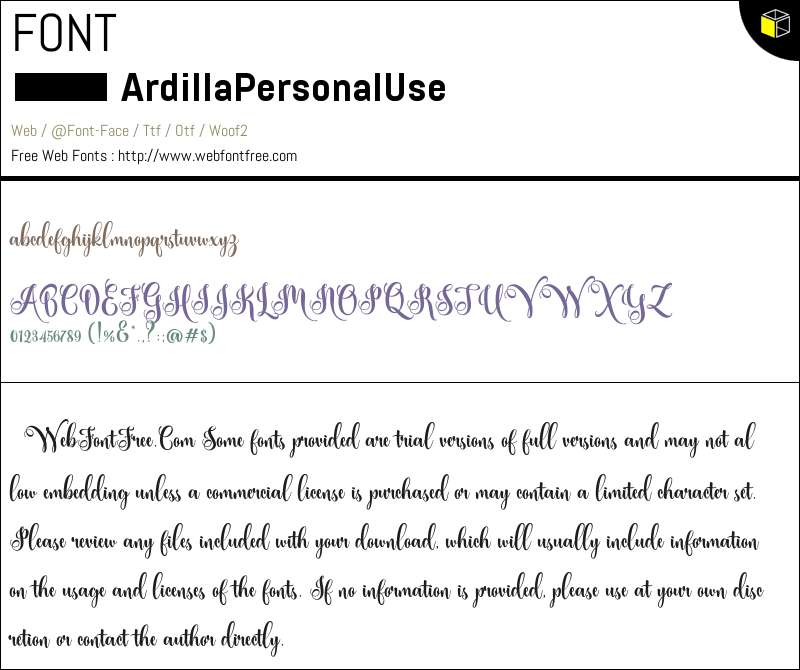 FONT
ArdillaPersonalUse
Web / @Font-Face / Ttf / Otf / Woof2
Free Web Fonts : http://www.webfontfree.com
abcdefghijklmnopqrstuvwxyz
ABCDEFGHIJKLMNOPQRSTUVWXYZ
0123456789 (!%&*.,?:;@#$)
WebFontFree.Com Some fonts provided are trial versions of full versions and may not al
low embedding unless a commercial license is purchased or may contain a limited character set.
Please review any files included with your download, which will usually include information
on the usage and licenses of the fonts. If no information is provided, please use at your own disc
retion or contact the author directly.